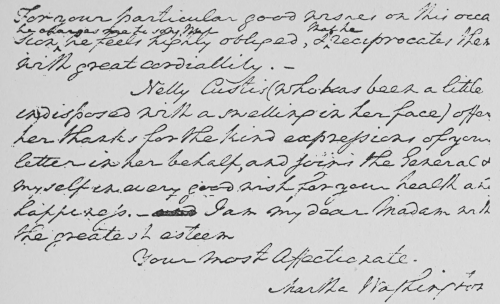 For your particular good wishes on this occa
he charges me to say that that he
sion, he feels highly obliged, & reciprocates them
with great cordiallity. —
Nelly Custis (who has been a little
indisposed with a swelling in her face) offers
her thanks for the kind expressions of your
letter in her behalf, and joins the General &
myself in every good wish for your health and
happiness. — I am my dear Madam with
the greatest esteem
Your most Affectionate.
Martha Washington